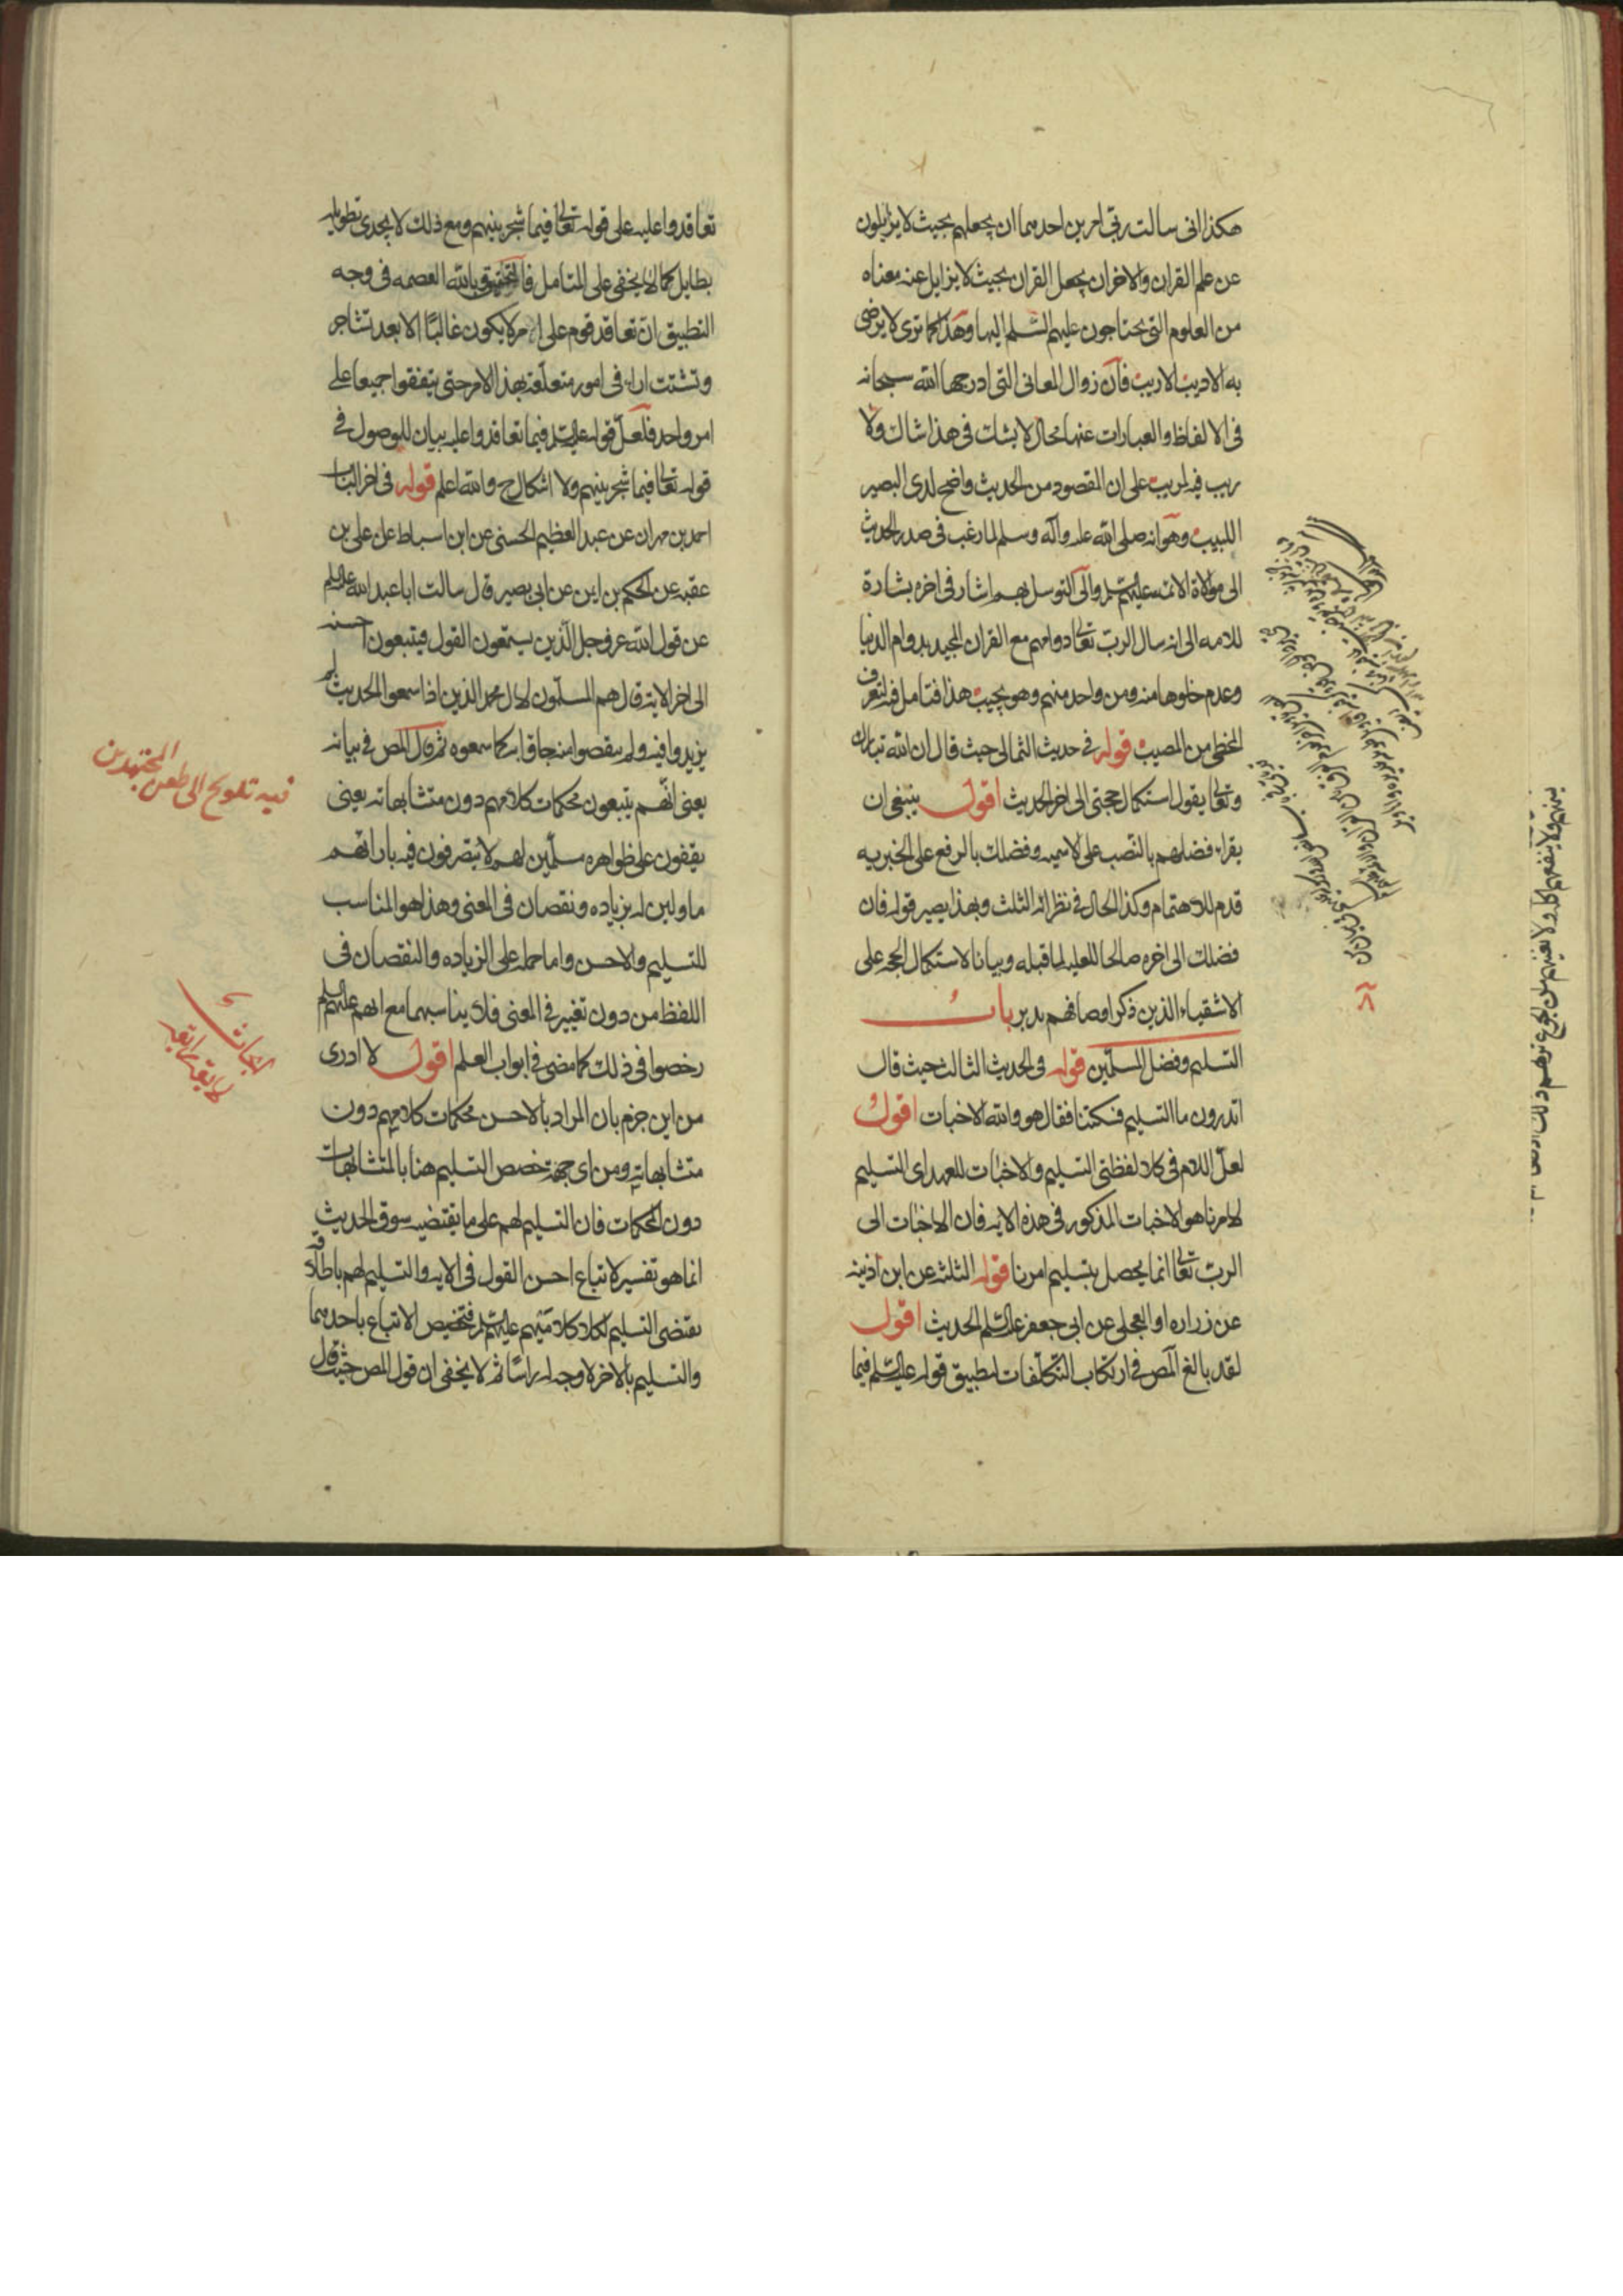 هكذا انى سالت ربى امرين احدهما ان يجعلهم بحيث لا يزايلون
عن علم القران والاخران يجعل القران بحيث لا يزايل عنه معناه
من العلوم التى يحتاجون عليهم السلم اليها وهذا كما ترى لا يرضى
به الاديب الاريب فان زوال المعانى التى ادرجها الله سبحانه
فى الالفاظ والعبارات عنها محال لا يشك فى هذا شاك ولا
ريب فيه لمريب على ان المقصود من الحديث واضح لدى البصير
اللبيب وهو انه صلى الله عليه وآله وسلم لما رغب فى صدر الحديث
الى موالاة الائمه عليهم السلم والى التوسل بهم اشار فى اخره بشارة
للامه الى انه سال الرب تعالى دوامهم مع القران المجيد بدوام الدنيا
وعدم خلوها منه ومن واحد منهم وهو يجيب هذا فتامل فيه لتعرف
المخطى من المصيب قوله فى حديث الثمالى حيث قال ان الله تبارك
وتعالى يقول استكمال حجتى الى اخر الحديث اقول ينبغى ان
يقراء فضلهم بالنصب على الاسميه وفضلك بالرفع على الخبريه
قدم للاهتمام وكذا الحال فى نظرائه الثلث وبهذا يصير قوله فان
فضلك الى اخره صالحا للعليه لما قبله وبيانا لاستكمال الحجه على
الاشقياء الذين ذكر اوصافهم تدبر باب
التسليم وفضل المسلمين قوله فى الحديث الثالث حيث قال
اتدرون ما التسليم فسكتنا فقال هو والله الاخبات اقول
لعل اللام فى كلا لفظتى التسليم والاخبات للعهد اى التسليم
لامرنا هو الاخبات المذكور فى هذه الايه فان الاخبات الى
الرب تعالى انما يحصل بتسليم امرنا قوله الثلثه عن ابن اذينه
عن زراره او العجلى عن ابى جعفر عليه السلم الحديث اقول
لقد بالغ المص فى ارتكاب التكلفات لتطبيق قوله عليه السلم فيما
تعاقدوا عليه على قوله تعالى فيما شجر بينهم ومع ذلك لا يجدى تطويله
بطايل كما لا يخفى على المتامل فالتحقيق وبالله العصمه فى وجه
التطبيق ان تعاقد قوم على امر لا يكون غالبا الا بعد تشاجر
وتشتت اراء فى امور متعلقه بهذا الامر حتى يتفقوا جميعا على
امر واحد فلعل قوله عليه السلم فيما تعاقدوا عليه بيان للموصول فى
قوله تعالى فيما شجر بينهم ولا اشكال ح والله اعلم قوله فى اخر الباب
احمد بن مهران عن عبد العظيم الحسنى عن ابن اسباط عن على بن
عقبه عن الحكم بن ايمن عن ابى بصير قال سالت ابا عبد الله عليه السلم
عن قول الله عز وجل الذين يستمعون القول فيتبعون احسنه
الى اخر الاية قال هم المسلمون لال محمد الذين اذا سمعوا الحديث لم
يزيدوا فيه ولم ينقصوا منه جاؤا به كما سمعوه ثم قال المص فى بيانه
يعنى انهم يتبعون محكمات كلامهم دون متشابهاته يعنى
يقفون على ظواهره مسلمين لهم لا يتصرفون فيه بارائهم
ماولين له بزياده ونقصان فى المعنى وهذا هو المناسب
للتسليم والاحسن واما حمله على الزياده والنقصان فى
اللفظ من دون تغيير فى المعنى فلا يناسبهما مع انهم عليهم السلم
رخصوا فى ذلك كما مضى فى ابواب العلم اقول لا ادرى
من اين جزم بان المراد بالاحسن محكمات كلامهم دون
متشابهاته ومن اى جهة خصص التسليم هنا بالمتشابهات
دون المحكمات فان التسليم لهم على ما يقتضيه سوق الحديث
انما هو تفسير لاتباع احسن القول فى الايه والتسليم لهم باطلاقه
يقتضى التسليم لكلا كلاميهم عليهم السلم فتخصيص الاتباع باحدهما
والتسليم بالاخر لا وجه له راسا ثم لا يخفى ان قول المص حيث قال
فيه تلويح الى طعن المجتهدين